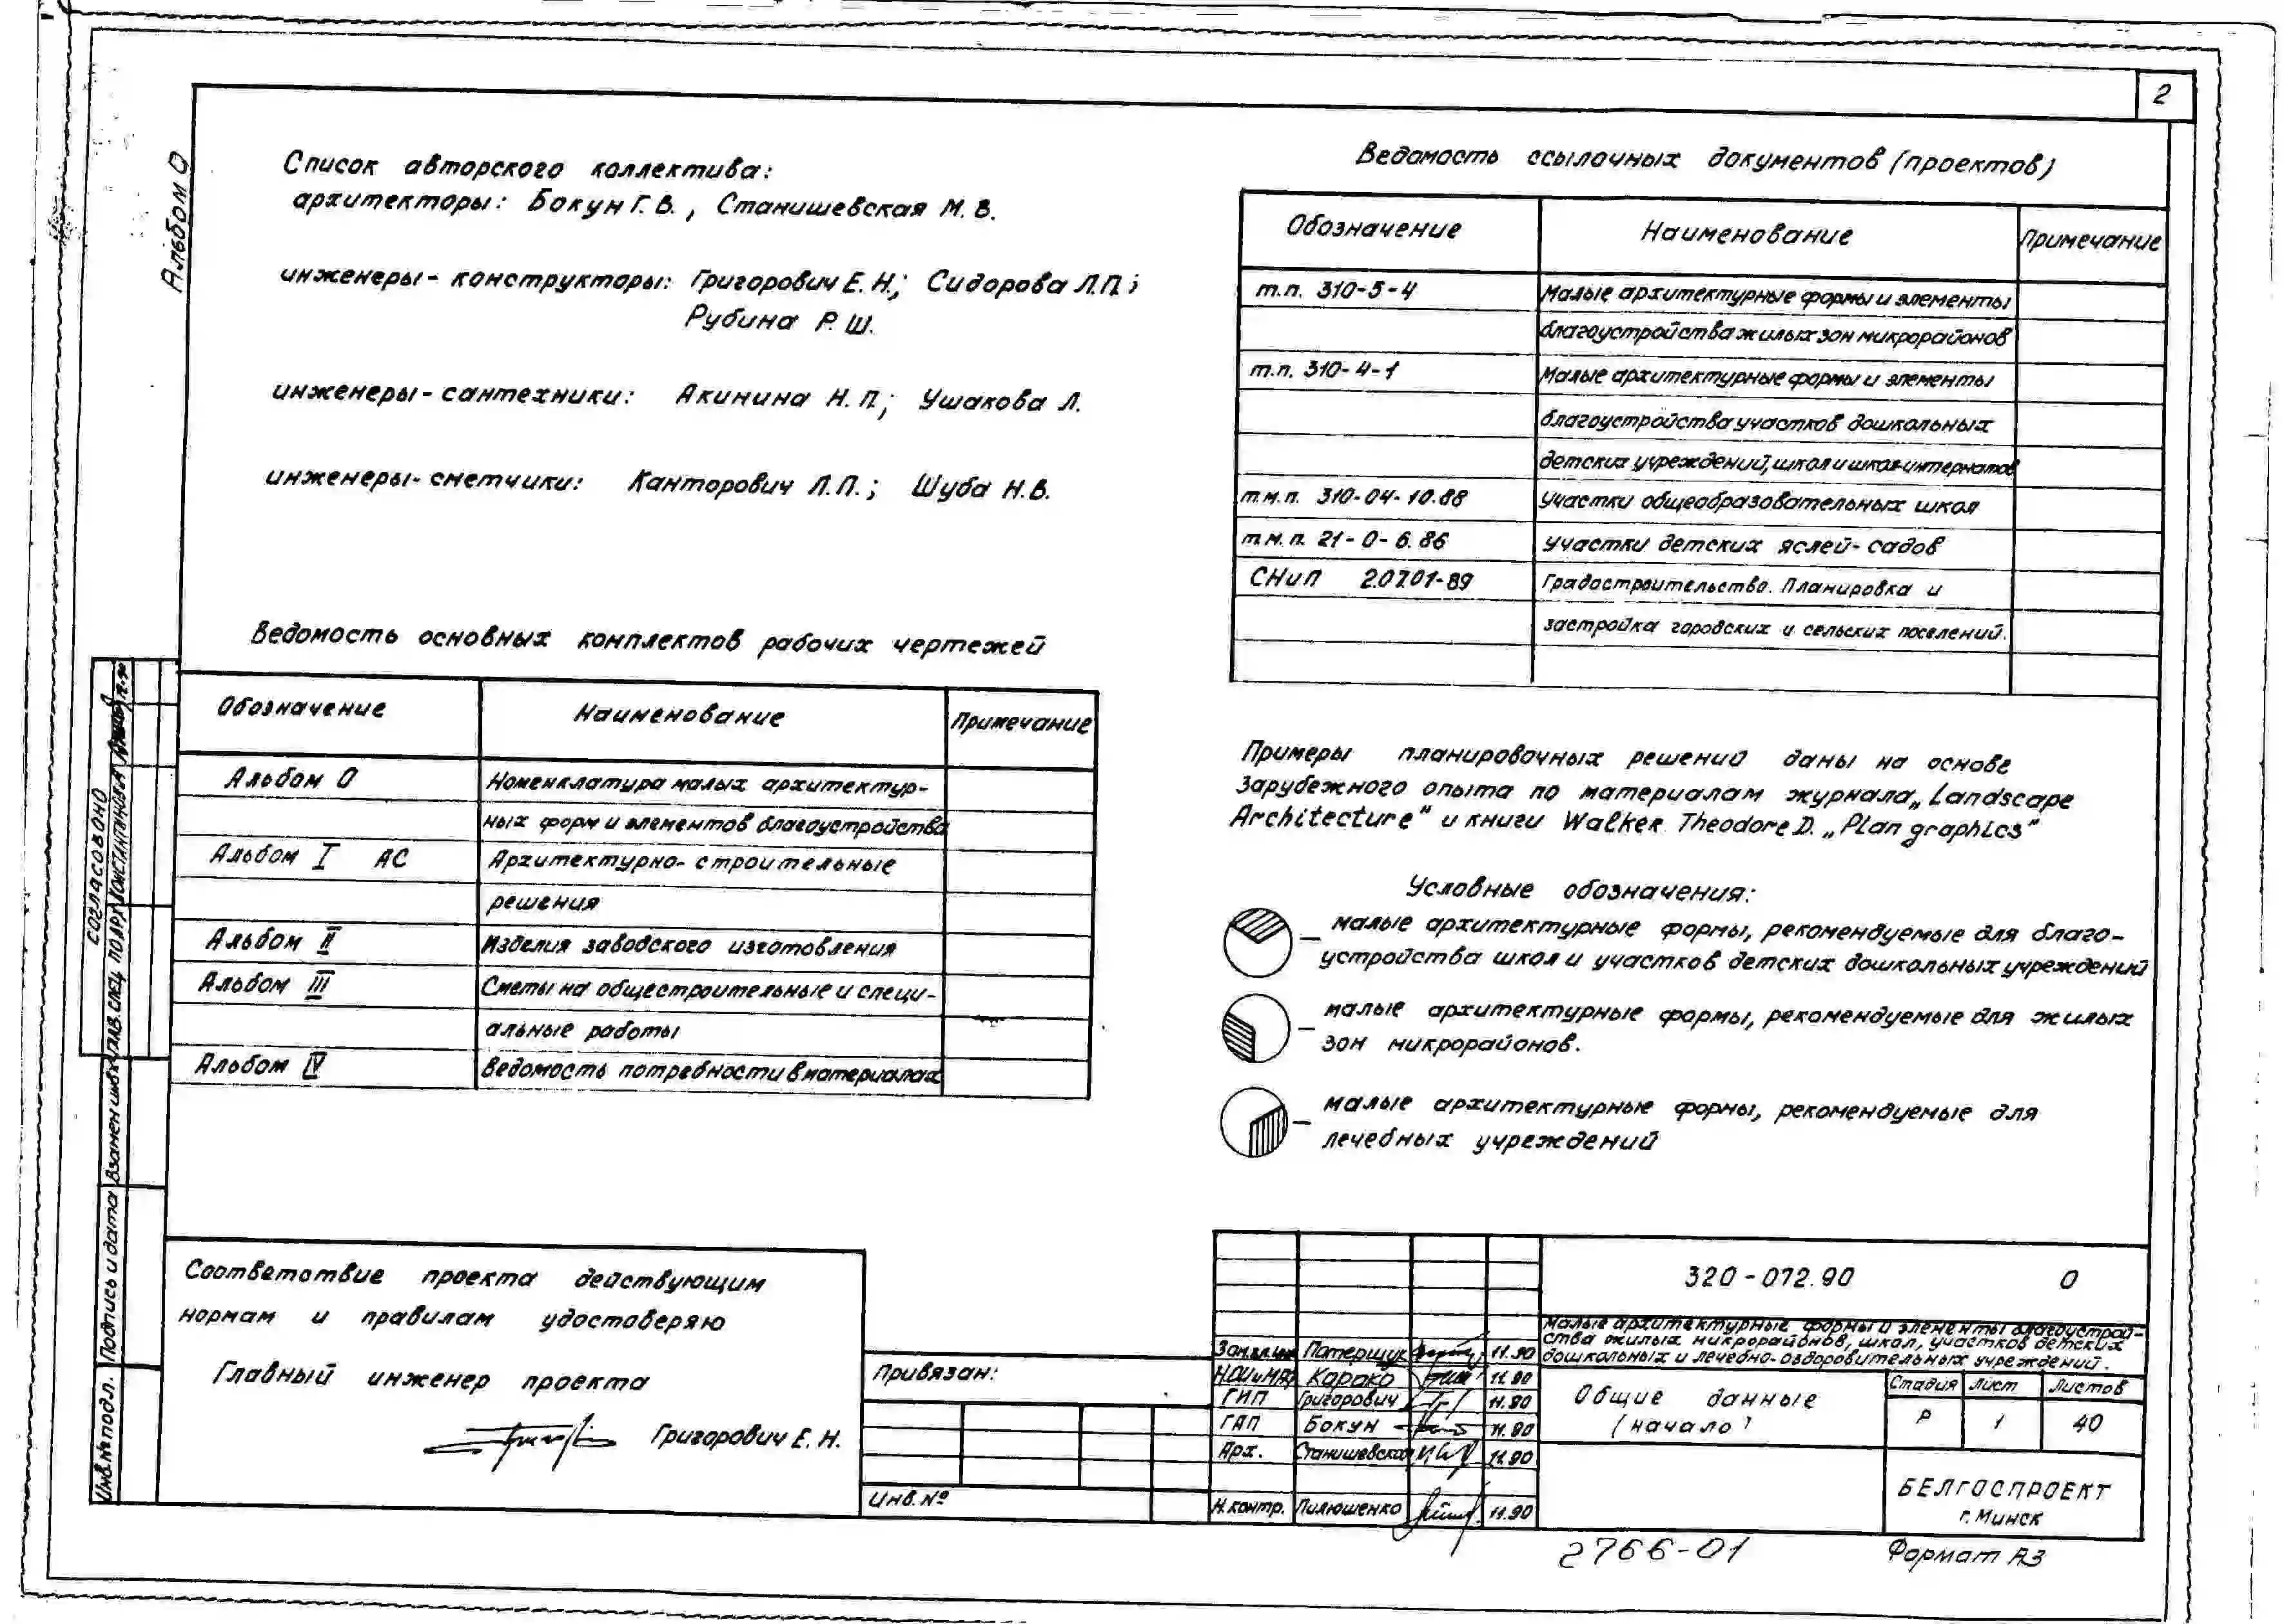 2
Альбом 0
Список авторского коллектива:
архитекторы: Бокун Г. В. , Станишевская М. В.
инженеры- конструкторы: Григорович Е. Н.; Сидорова Л.П.;
Рубина Р. Ш.
инженеры- сантехники: Акинина Н. П.; Ушакова Л.
инженеры- сметчики: Канторович Л.П. ; Шуба Н.В.
Ведомость основных комплектов рабочих чертежей
Обозначение Наименование Примечание
Альбом 0 Номенклатура малых архитектур-
ных форм и элементов благоустройства
Альбом I АС Архитектурно- строительные
решения
Альбом II Изделия заводского изготовления
Альбом III Сметы на общестроительные и специ-
альные работы
Альбом IV Ведомость потребности в материалах
Ведомость ссылочных документов (проектов)
Обозначение Наименование Примечание
т.п. 310-5-4 Малые архитектурные формы и элементы
благоустройства жилых зон микрорайонов
т.п. 310-4-1 Малые архитектурные формы и элементы
благоустройства участков дошкольных
детских учреждений, школ и школ-интернатов
т.м.п. 310-04-10.88 Участки общеобразовательных школ
т.м.п. 21-0-6.86 Участки детских яслей-садов
СНиП 2.07.01-89 Градостроительство. Планировка и
застройка городских и сельских поселений.
Примеры планировочных решений даны на основе
зарубежного опыта по материалам журнала „Landscape
Architecture" и книги Walker Theodore D. „Plan graphics"
Условные обозначения:
— малые архитектурные формы, рекомендуемые для благо-
устройства школ и участков детских дошкольных учреждений
— малые архитектурные формы, рекомендуемые для жилых
зон микрорайонов.
— малые архитектурные формы, рекомендуемые для
лечебных учреждений
СОГЛАСОВАНО
ГЛАВ. СПЕЦ. ПО АРХ. КОНСТАНТИНОВА
Взамен инв.№
Подпись и дата
Инв.№ подл.
Соответствие проекта действующим
нормам и правилам удостоверяю
Главный инженер проекта
Григорович Е. Н.
Привязан:
Инв. №
320-072.90 0
Малые архитектурные формы и элементы благоустрой-
ства жилых микрорайонов, школ, участков детских
дошкольных и лечебно-оздоровительных учреждений.
Потершук 11.90
Карако 11.90
ГИП Григорович 11.90
ГАП Бокун 11.90
Арх. Станишевская 11.90
Н.контр. Пилюшенко 11.90
Общие данные
(начало)
Стадия Лист Листов
Р 1 40
БЕЛГОСПРОЕКТ
г. Минск
2766-01
Формат А3